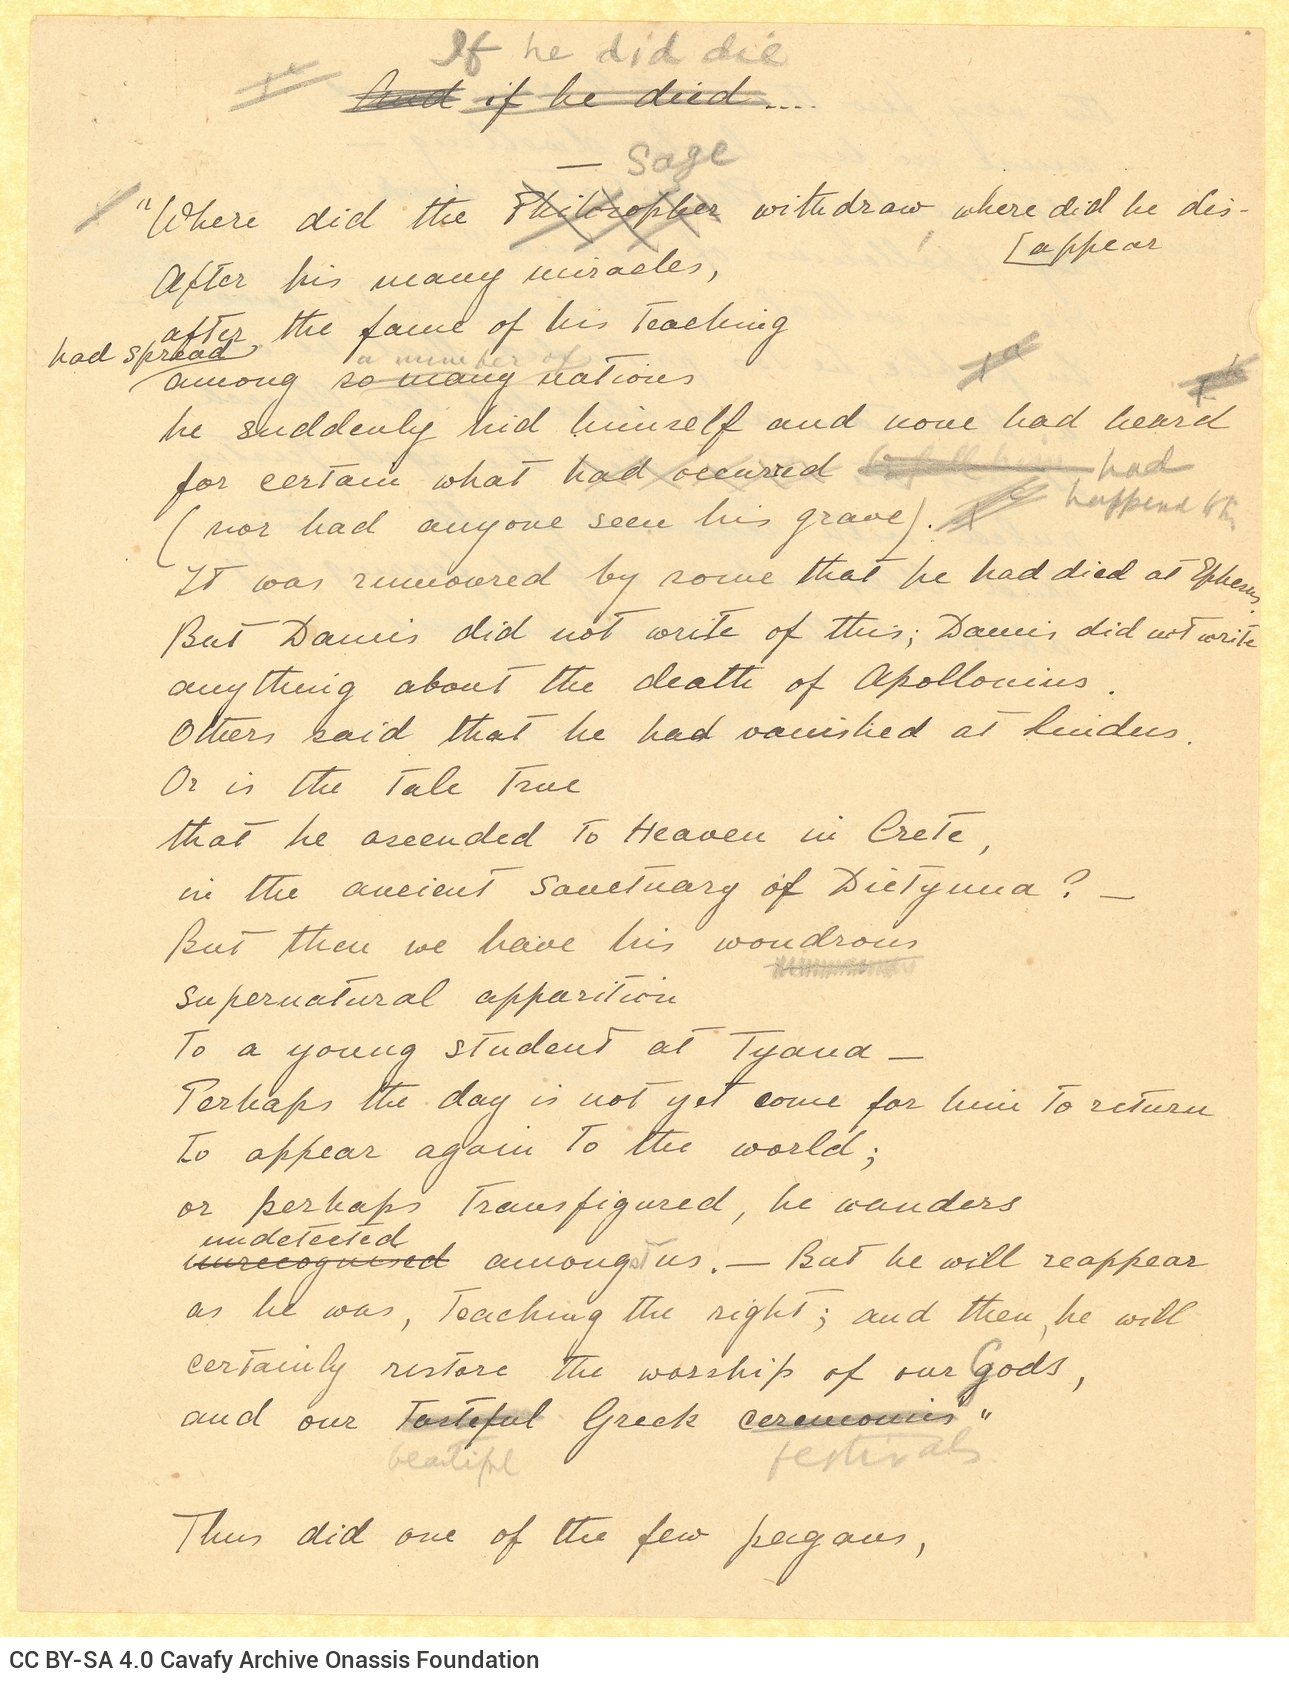 If he did die
And if he died....
— Sage
"Where did the Philosopher withdraw, where did he dis-
[appear
After his many miracles,
after the fame of his teaching
had spread
a number of
among so many nations
he suddenly hid himself and none had heard
for certain what had occurred befall him had
happened to him
(nor had anyone seen his grave).
It was rumoured by some that he had died at Ephesus.
But Damis did not write of this; Damis did not write
anything about the death of Apollonius.
Others said that he had vanished at Lindus.
Or is the tale true
that he ascended to Heaven in Crete,
in the ancient sanctuary of Dictynna? —
But then we have his wondrous
supernatural apparition
to a young student at Tyana —
Perhaps the day is not yet come for him to return
to appear again to the world;
or perhaps transfigured, he wanders
undetected
unrecognised amongst us. — But he will reappear
as he was, teaching the right; and then, he will
certainly restore the worship of our Gods,
and our tasteful Greek ceremonies"
beautiful festivals
Thus did one of the few pagans,
CC BY-SA 4.0 Cavafy Archive Onassis Foundation